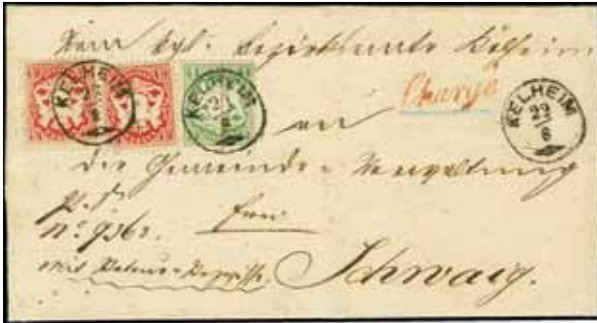 Vom kgl. Bezirksamte Kelheim
KELHEIM
KELHEIM
Chargé
KELHEIM
22
6
an
die Gemeinde-Verwaltung
frei
No 9362.
mit Retour-Rezepisse
Schwaig.